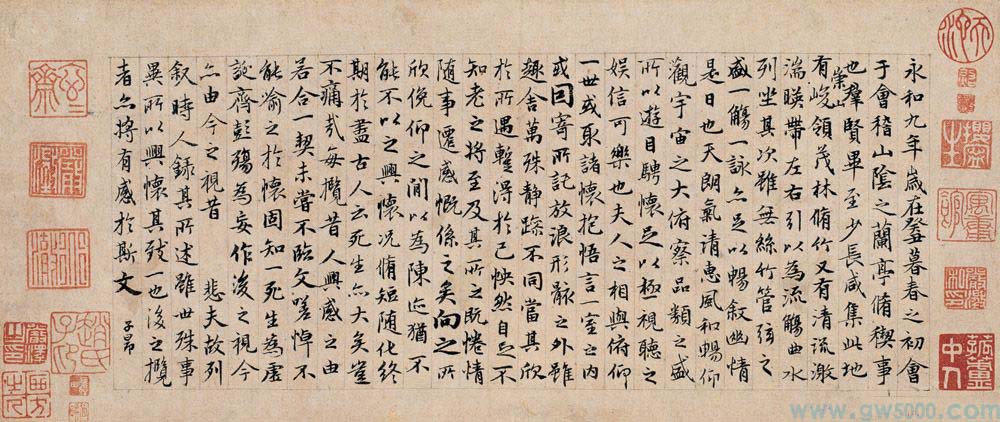 永和九年歲在癸丑暮春之初會
于會稽山陰之蘭亭脩稧事
也羣賢畢至少長咸集此地
有崇山峻領茂林脩竹又有清流激
湍暎帶左右引以為流觴曲水
列坐其次雖無絲竹管弦之
盛一觴一詠亦足以暢敘幽情
是日也天朗氣清惠風和暢仰
觀宇宙之大俯察品類之盛
所以遊目騁懷足以極視聽之
娛信可樂也夫人之相與俯仰
一世或取諸懷抱悟言一室之內
或因寄所託放浪形骸之外雖
趣舍萬殊靜躁不同當其欣
於所遇蹔得於己怏然自足不
知老之將至及其所之既惓情
隨事遷感慨係之矣向之所
欣俛仰之閒以為陳迹猶不
能不以之興懷況脩短隨化終
期於盡古人云死生亦大矣豈
不痛哉每攬昔人興感之由
若合一契未嘗不臨文嗟悼不
能喻之於懷固知一死生為虛
誕齊彭殤為妄作後之視今
亦由今之視昔 悲夫故列
敘時人錄其所述雖世殊事
異所以興懷其致一也後之攬
者亦將有感於斯文
子昂
www.gw5000.com